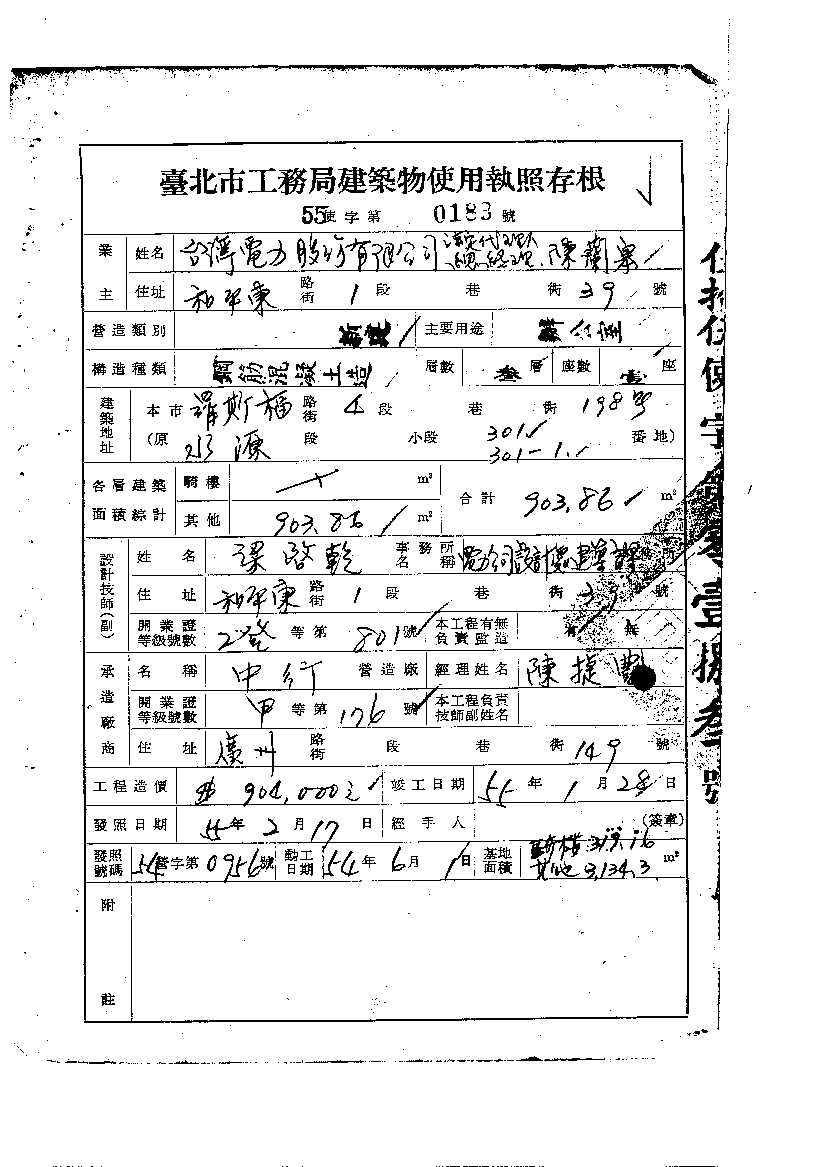 臺北市工務局建築物使用執照存根
55使字第 0183 號
業主 姓名 台灣電力股份有限公司 法定代理人 總經理 陳蘭皋
住址 和平東 路街 1 段 巷 街 39 號
營造類別 新建 主要用途 辦公室
構造種類 鋼筋混凝土造 層數 叁層 座數 壹座
建築地址 本市 羅斯福 路街 4 段 巷 街 198號
(原 水源 段 小段 301 301-1 番地)
各層建築面積綜計 騎樓 m² 合計 903.86 m²
其他 903.86 m²
設計技師(副) 姓名 梁啓乾 事務所名稱
住址 和平東 路街 1 段 巷 街 39 號
開業證等級號數 乙 等第 801 號 本工程有無負責監造 有 無
承造廠商 名稱 中行 營造廠 經理姓名 陳捷
開業證等級號數 甲 等第 176 號 本工程負責技師副姓名
住址 廣州 路街 段 巷 街 149 號
工程造價 904,000元 竣工日期 55年 1 月 28 日
發照日期 55年 2 月 17 日 經手人 (簽章)
發照號碼 54營字第 0956號 動工日期 54年 6 月 1日 基地面積 其他 3,134.3 m²
附註
使字第零壹捌叁號